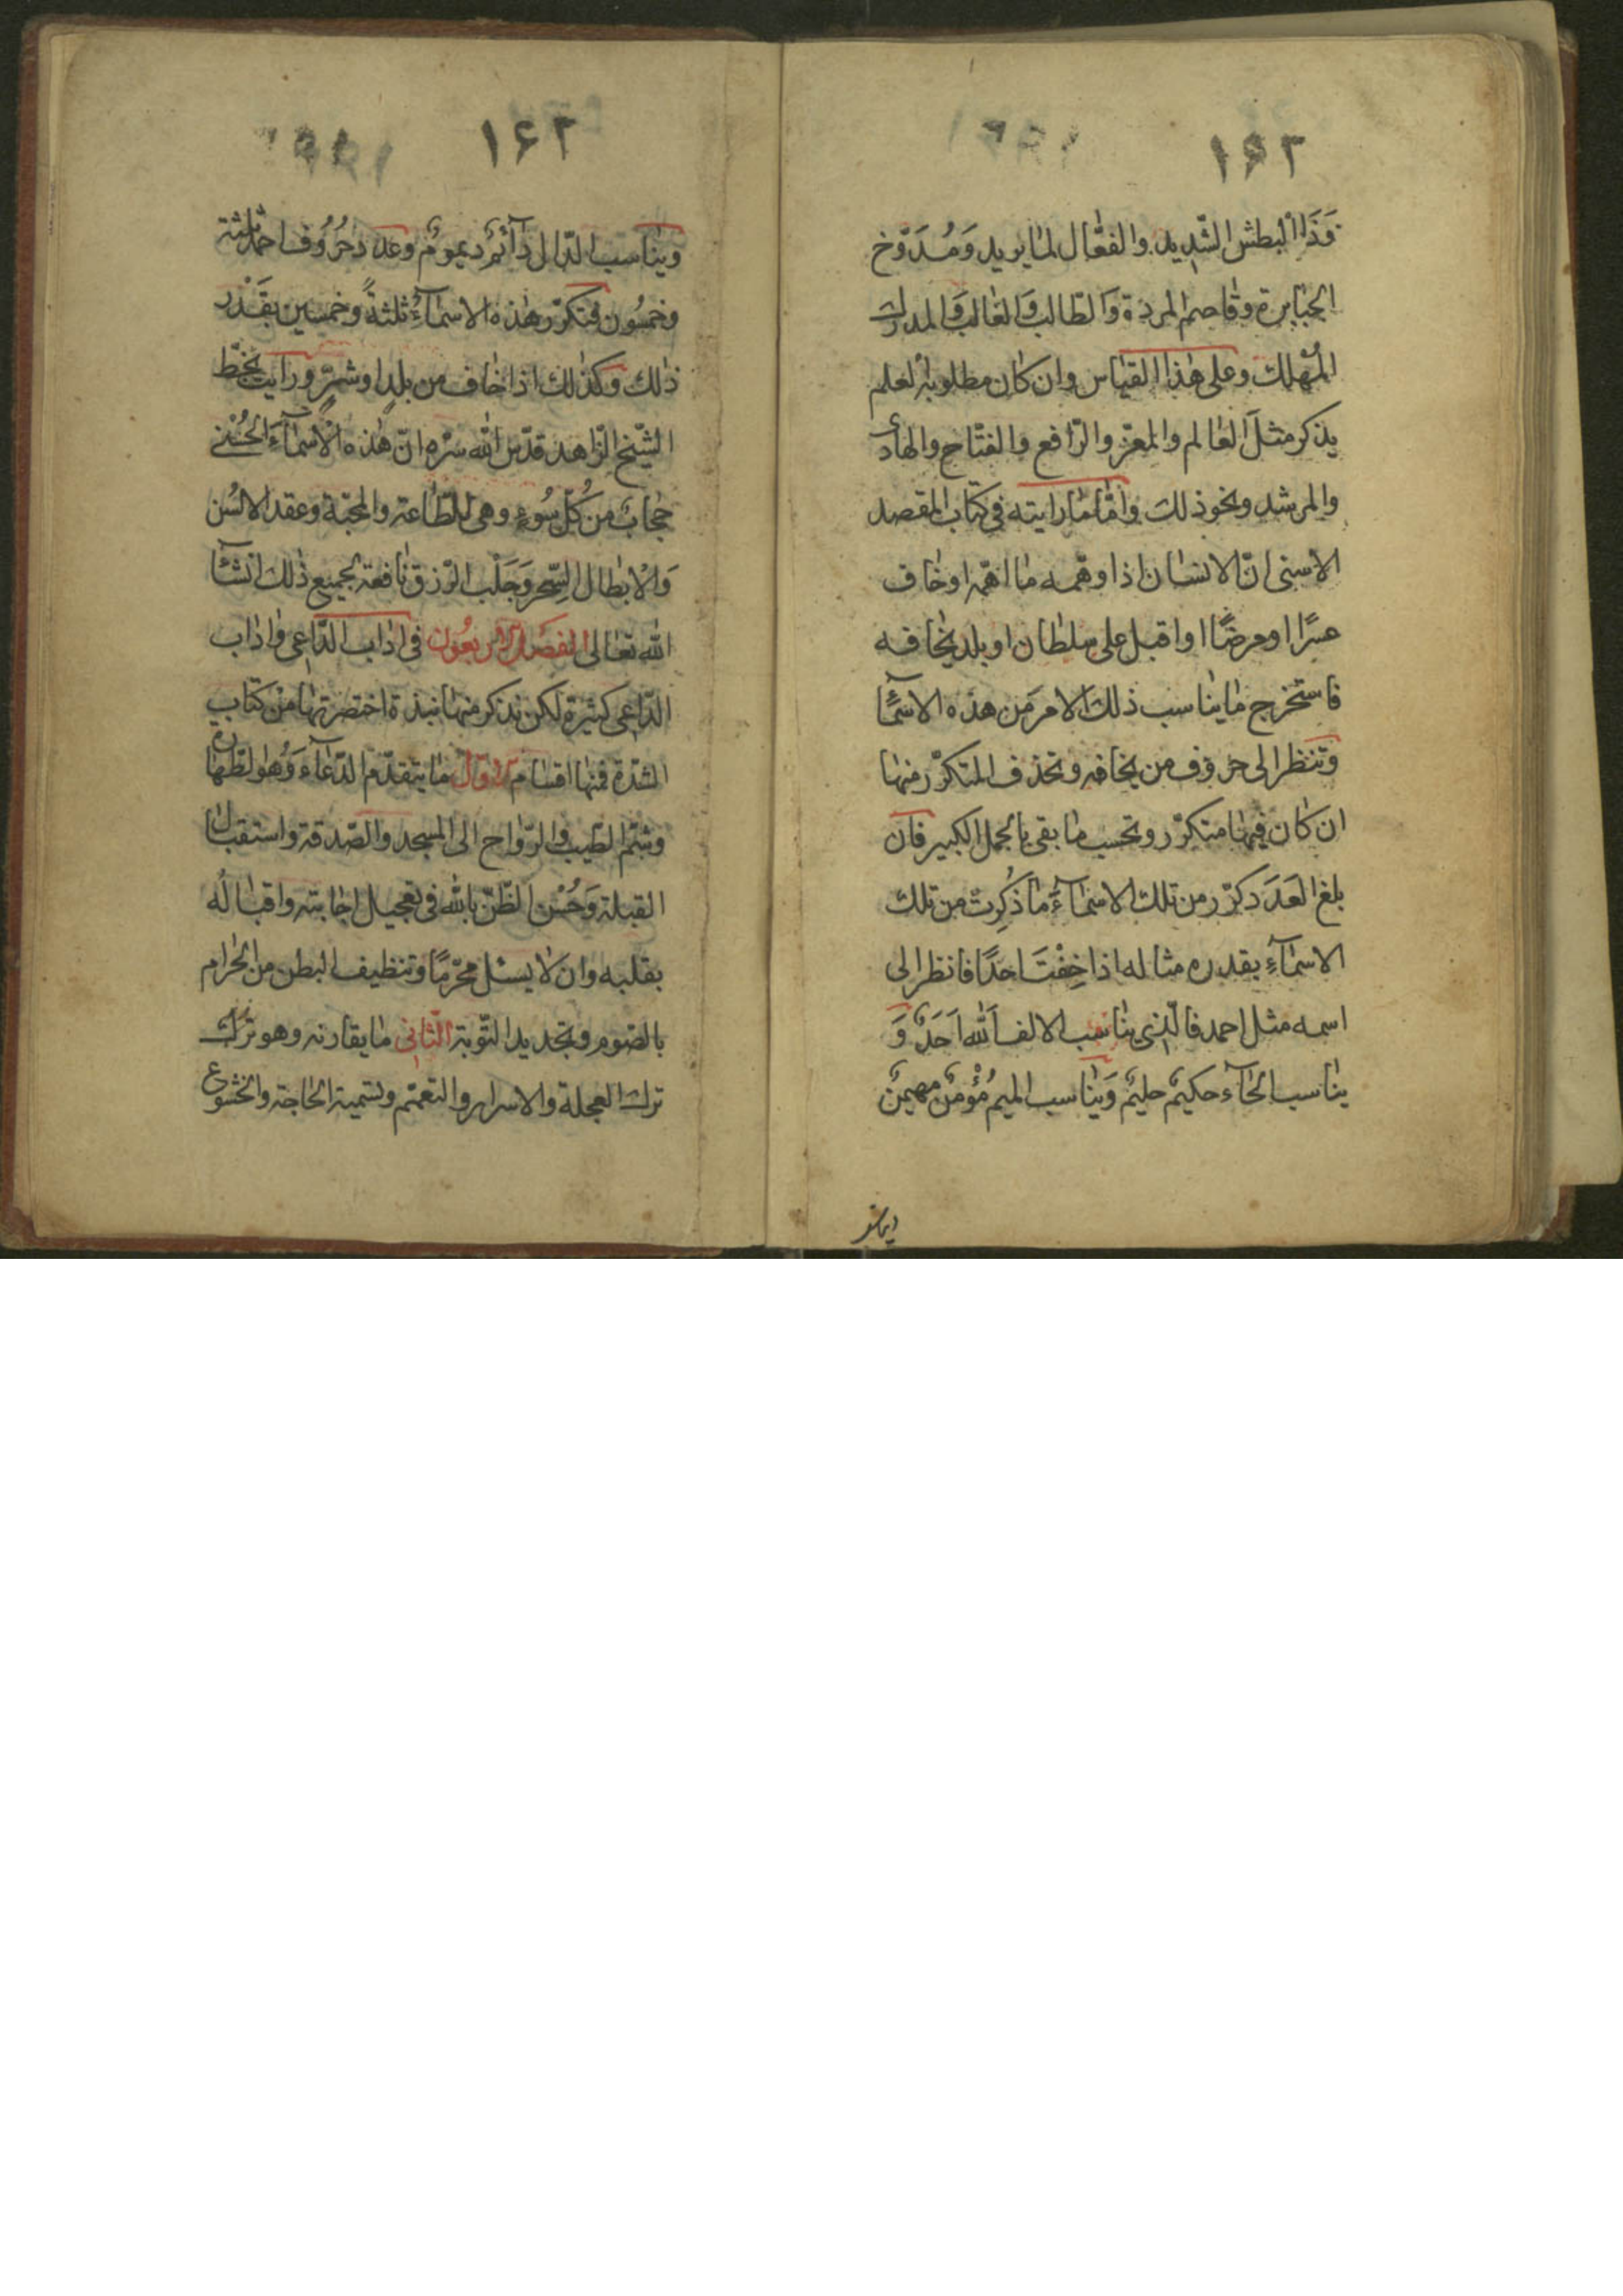 ١۶٢
وَذَا البطش الشّدِيد والفعّال لما يريد وَمُدَوّخ
الجبابرة وقاصم المردة وَالطّالب وَالغالب وَالمدرك
المُهْلك وعلى هذا القياس وان كان مطلوبه لعلم
يذكر مثل العالم والمعزّ والرّافع والفتّاح والهادى
والمرشد ونحو ذلك وامّا ما رايته فى كتاب المقصد
الاسنى انّ الانسان اذا وهمه ما اهمّه او خاف
عسرًا او مرضًا او اقبل على سلطان او بلد يخافه
فاستخرج ما يناسب ذلك الامر من هذه الاسمآء
وتنظر الى حروف من يخافه وتحذف المتكرّر منها
ان كان فيها متكرّر وتحسب ما بقى بالجمل الكبير فان
بلغ العَدَد كرّر من تلك الاسمآء ما ذُكِرت من تلك
الاسمآءِ بقدره مثاله اذا خِفْتَ احدًا فانظر الى
اسمه مثل احمد فالّذى يناسب الالف اَللّه اَحَدٌ وَ
يناسب الحآء حكيمٌ حليمٌ وَيناسب الميم مُؤْمنٌ مهيمنٌ
١۶٢
ويناسب الدّال دآئمٌ ديمومٌ وعدد حُرُوف احمد ثلثة
وخمسُون فتكرّر هذه الاسمآءُ ثلثةً وخمسين بقَدْر
ذلك وكذلك اذا خاف من بلدٍ او شرٍّ ورايت بخطّ
الشّيخ الزّاهد قدّس اللّه سرّه انّ هذه الاسمآءَ الحُسْنى
حجابٌ من كُلّ سُوءٍ وهى للطّاعة والمحبّة وعقد الالسُن
وَالابطال السّحر وَجَلْب الرّزق نافعة لجميع ذلك انشآ
اللّه تعالى الفصل الاربعُون فى اداب الدّاعى واداب
الدّاعى كثيرة لكن نذكر منها نبذة اختصرتها من كتاب
العُدّة فمنها اقسام الاوّل ما يتقدّم الدّعآء وَهُو الطّهارة
وشمّ الطّيب والرّواح الى المسجد والصّدقة واستقبال
القبلة وَحُسْن الظّنّ باللّه فى تعجيل اجابته واقباله
بقلبه وان لا يسئل محرّمًا وتنظيف البطن من الحرام
بالصّوم وتجديد التّوبة الثّانى ما يقارنه وهو ترك
ترك العجلة والاسرار والتعميم وتسمية الحاجة والخشوع